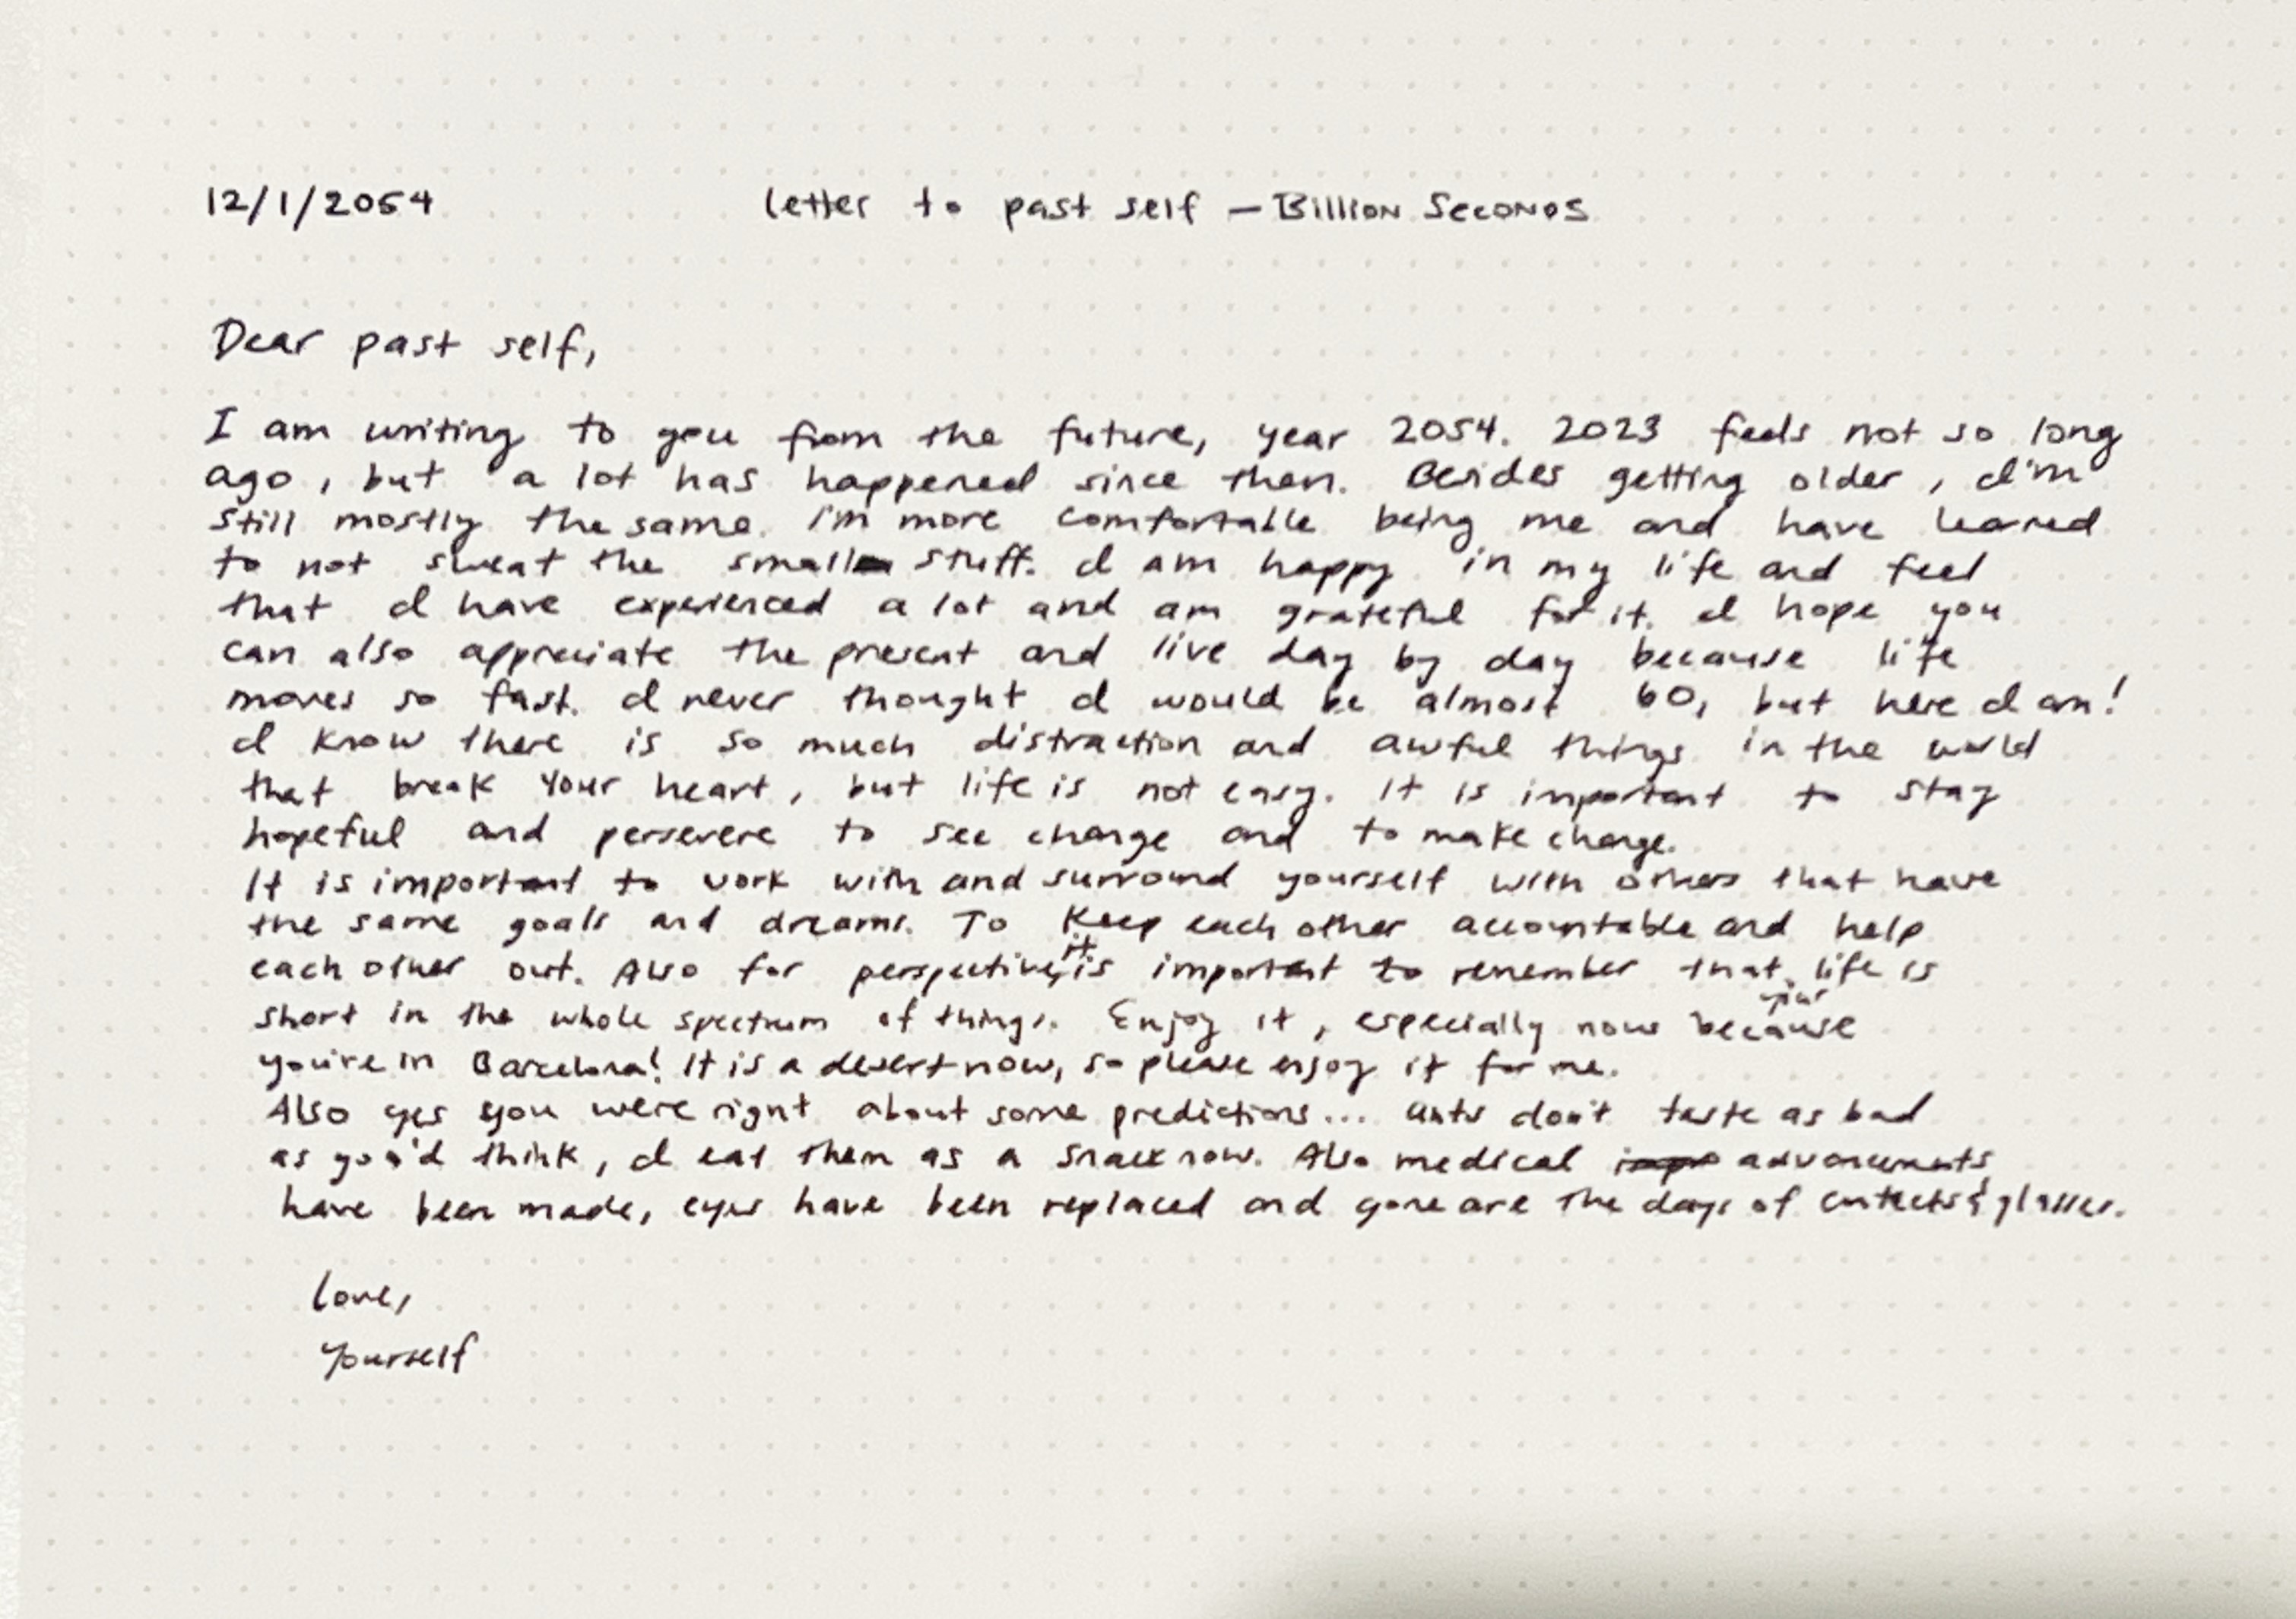 12/1/2054 letter to past self – Billion Seconds
Dear past self,
I am writing to you from the future, year 2054. 2023 feels not so long
ago, but a lot has happened since then. Besides getting older, I'm
still mostly the same. I'm more comfortable being me and have learned
to not sweat the small stuff. I am happy in my life and feel
that I have experienced a lot and am grateful for it. I hope you
can also appreciate the present and live day by day because life
moves so fast. I never thought I would be almost 60, but here I am!
I know there is so much distraction and awful things in the world
that break your heart, but life is not easy. It is important to stay
hopeful and persevere to see change and to make change.
It is important to work with and surround yourself with others that have
the same goals and dreams. To keep each other accountable and help
each other out. Also for perspective, it is important to remember that your life is
short in the whole spectrum of things. Enjoy it, especially now because
you're in Barcelona! It is a desert now, so please enjoy it for me.
Also yes you were right about some predictions... ants don't taste as bad
as you'd think, I eat them as a snack now. Also medical advancements
have been made, eyes have been replaced and gone are the days of contacts & glasses.
love,
yourself